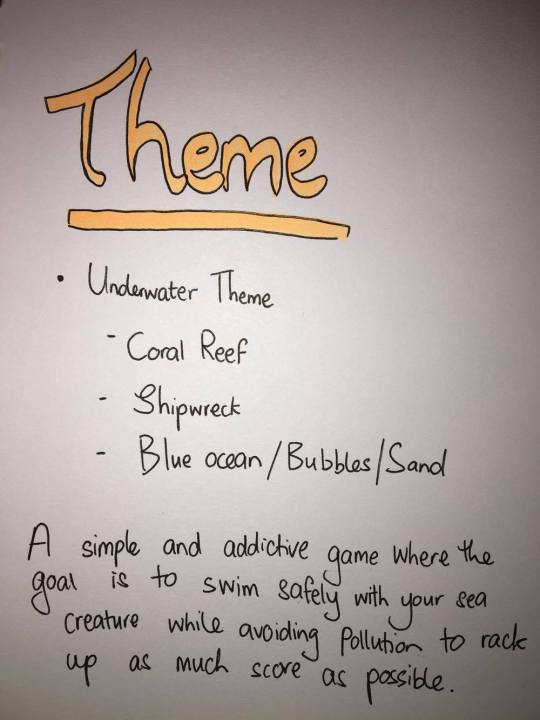 Theme
• Underwater Theme
- Coral Reef
- Shipwreck
- Blue ocean/Bubbles/Sand
A simple and addictive game where the
goal is to swim safely with your sea
creature while avoiding Pollution to rack
up as much score as possible.